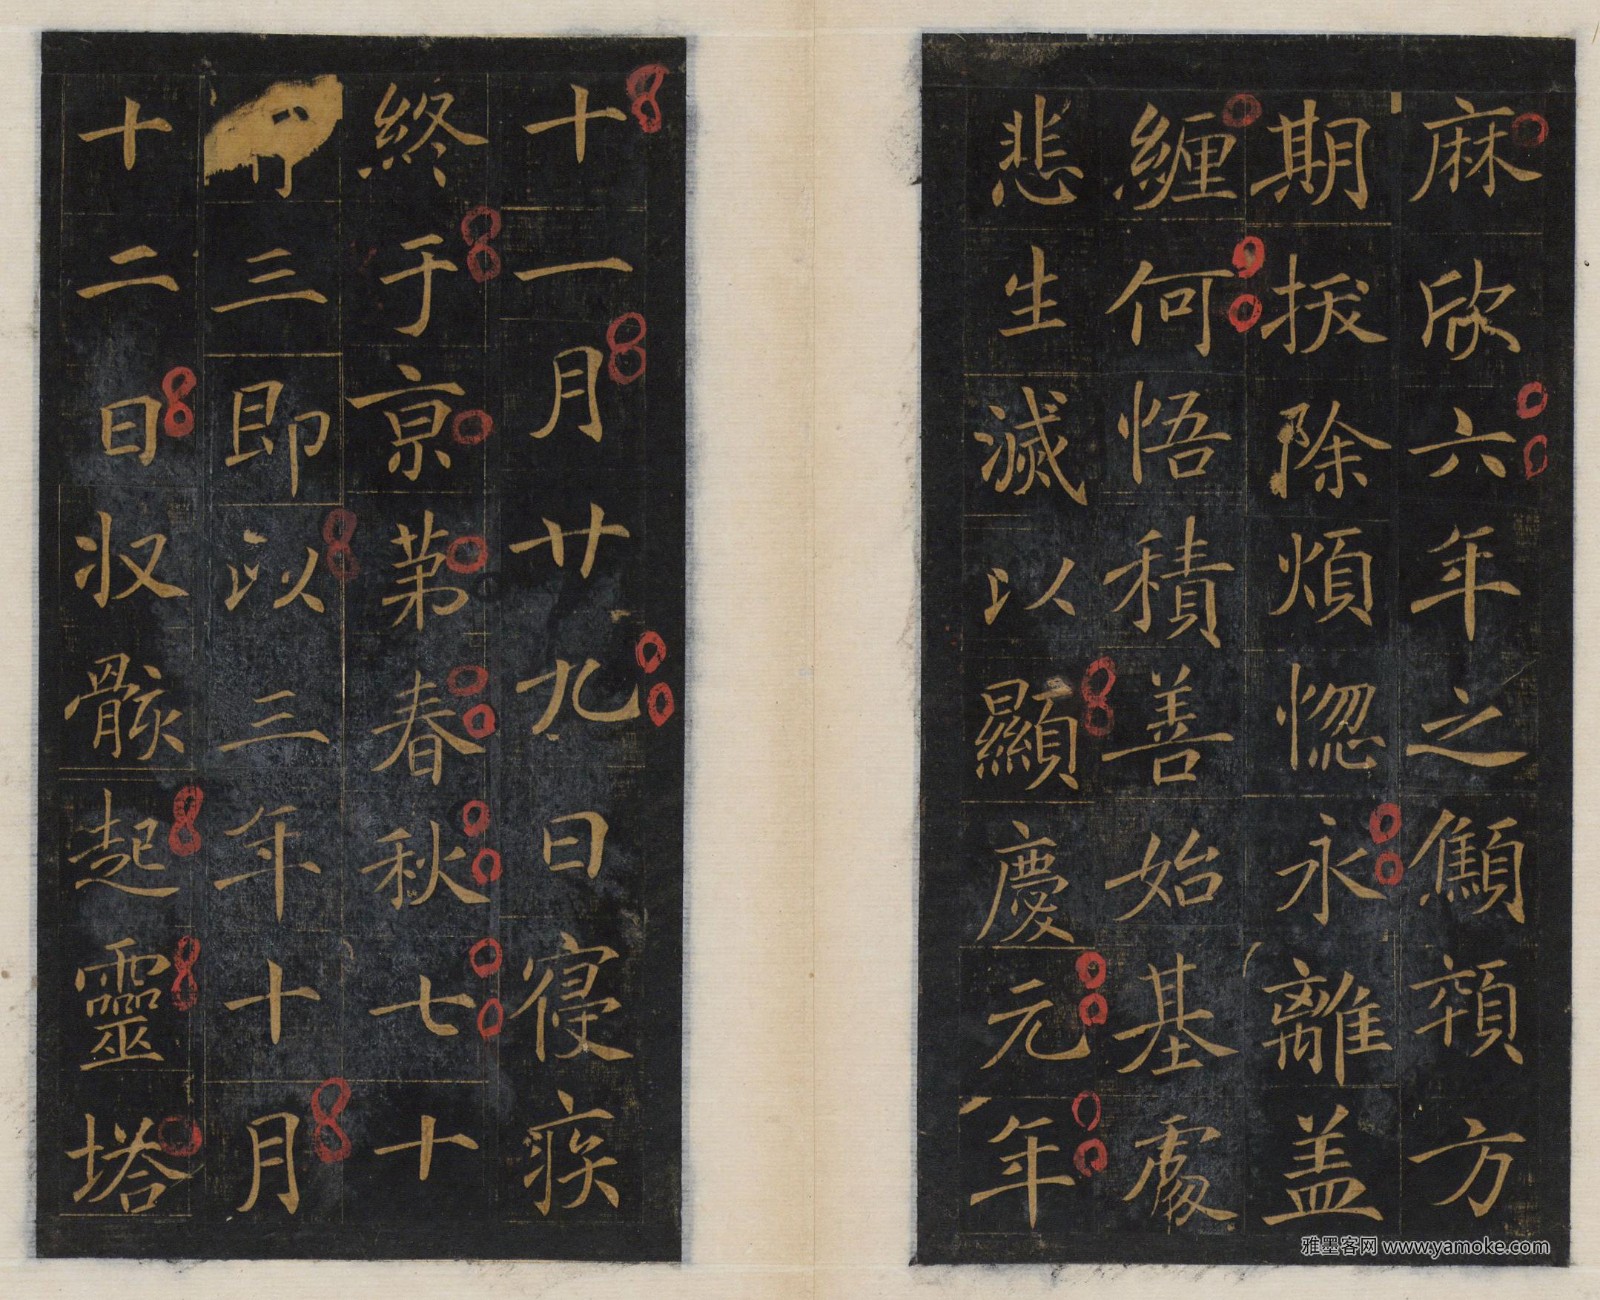 麻欣六年之顦顇方
期拔除煩惚永離盖
纏何悟積善始基處
悲生滅以顯慶元年
十一月廿九日寢疾
終于京苐春秋七十
三即以三年十月
十二日収骸起靈塔
雅墨客网 www.yamoke.com